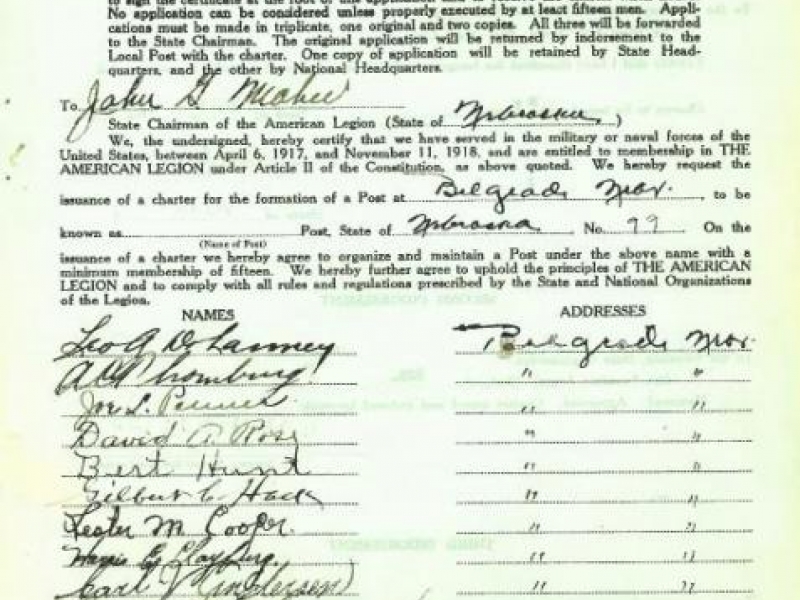 No application can be considered unless properly executed by at least fifteen men. Appli-
cations must be made in triplicate, one original and two copies. All three will be forwarded
to the State Chairman. The original application will be returned by indorsement to the
Local Post with the charter. One copy of application will be retained by State Head-
quarters, and the other by National Headquarters.
To John G
State Chairman of the American Legion (State of Nebraska)
We, the undersigned, hereby certify that we have served in the military or naval forces of the
United States, between April 6, 1917, and November 11, 1918, and are entitled to membership in THE
AMERICAN LEGION under Article II of the Constitution, as above quoted. We hereby request the
issuance of a charter for the formation of a Post at Belgrade Nebr., to be
known as Post, State of Nebraska No. 99 On the
(Name of Post)
issuance of a charter we hereby agree to organize and maintain a Post under the above name with a
minimum membership of fifteen. We hereby further agree to uphold the principles of THE AMERICAN
LEGION and to comply with all rules and regulations prescribed by the State and National Organizations
of the Legion.
NAMES ADDRESSES
Leo A Belgrade Nebr.
" "
Joe L. " "
David A. Ross " "
Bert Hunt " "
Gilbert C. Hack " "
Lester M. Cooper. " "
" "
Carl Anderson " "